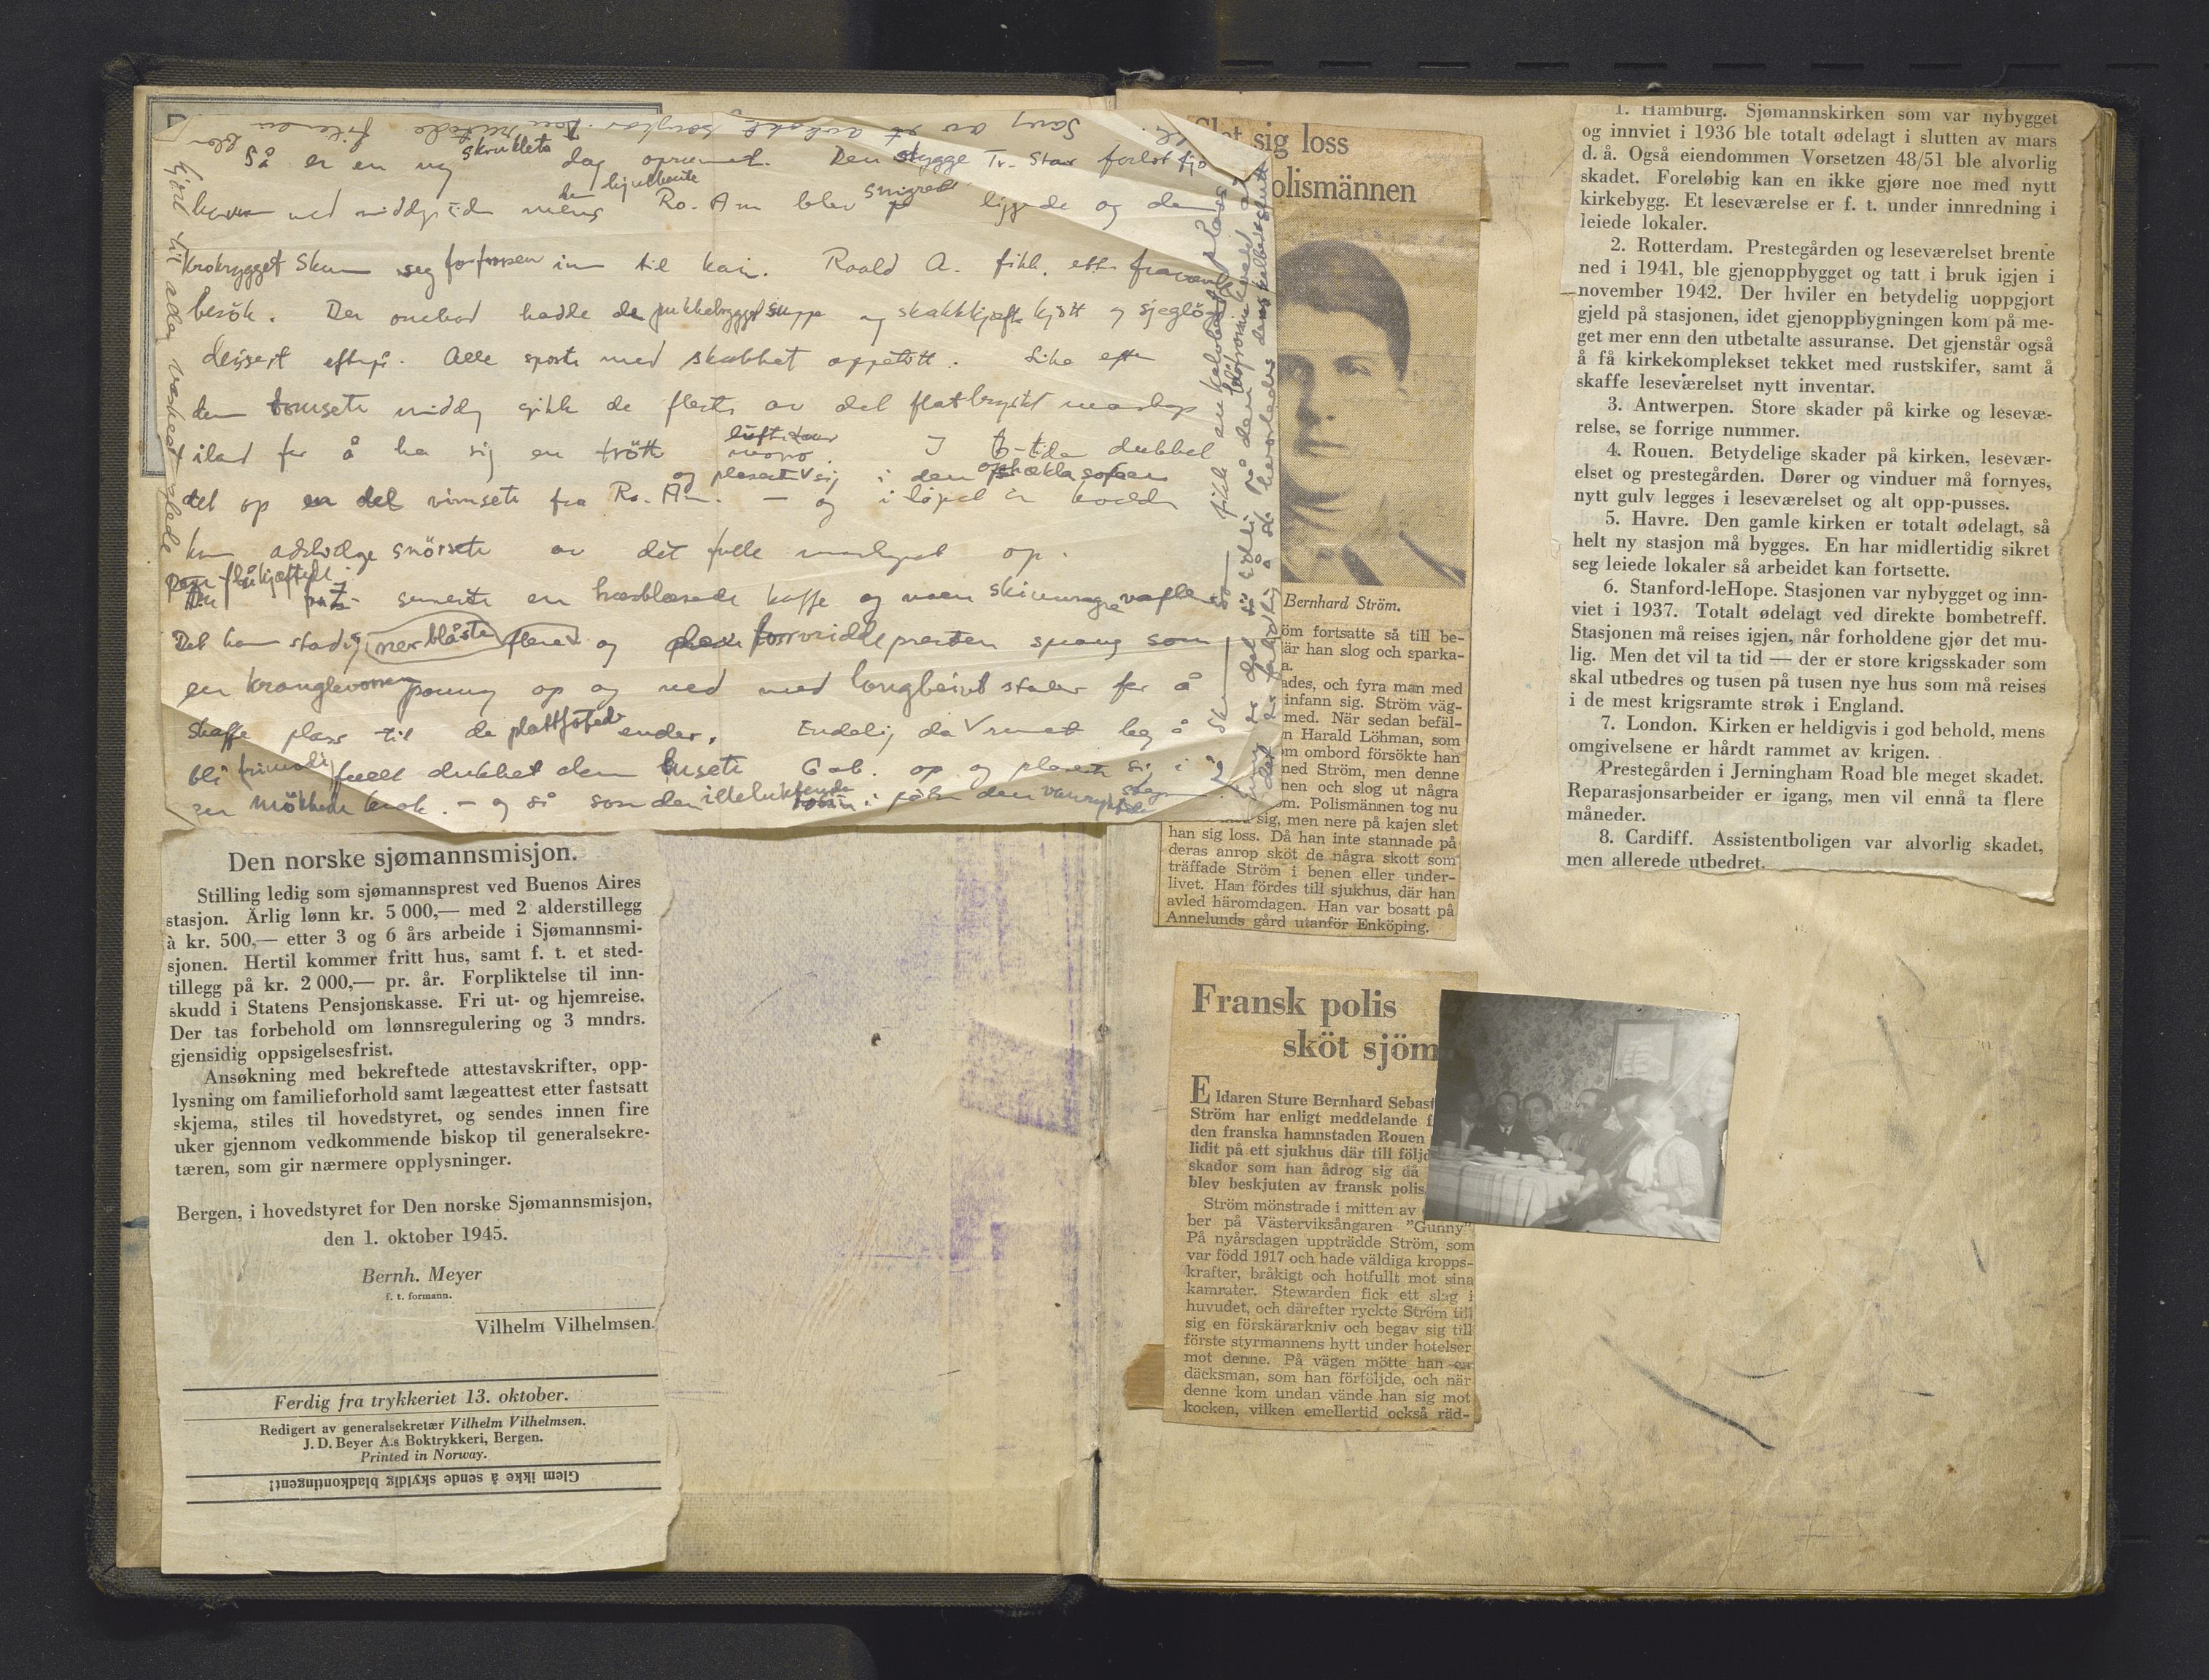 Så er en ny skrukkete dag oprunnet. Den stygge Tr. Star forlot
havnen ved middagstiden mens den hjulbente Ro. Am blev liggende og den
krokrygget Skum seg forfrossen inn til kai. Roald A. fikk
besök. Der ombord hadde de pukkelrygget suppe og skakkkjæft kjött og
dessert efterpå. Alle spiste med skabbet appetitt. Like efter
den tomsete middag gikk de fleste av det flatbrystet mannskap
iland for å ha sig en trött
det op en del vimsete fra Ro. Am. og plaserte sig i den sofaen
kom av det fulle op.
serverte en kaffe og noen skinnmagre vafler
Det kom stadig flere og den forvridde presten sprang som
en kranglevoren ponny op og ned med langbeint stoler for å
skaffe plass til de plattfotede ender. Endelig da rummet tog å
bli fullt dukket den lusete Gab. op og plaserte sig i
Den norske sjømannsmisjon.
Stilling ledig som sjømannsprest ved Buenos Aires
stasjon. Årlig lønn kr. 5 000,— med 2 alderstillegg
à kr. 500,— etter 3 og 6 års arbeide i Sjømannsmi-
sjonen. Hertil kommer fritt hus, samt f. t. et sted-
tillegg på kr. 2 000,— pr. år. Forpliktelse til inn-
skudd i Statens Pensjonskasse. Fri ut- og hjemreise.
Der tas forbehold om lønnsregulering og 3 mndrs.
gjensidig oppsigelsesfrist.
Ansøkning med bekreftede attestavskrifter, opp-
lysning om familieforhold samt lægeattest etter fastsatt
skjema, stiles til hovedstyret, og sendes innen fire
uker gjennom vedkommende biskop til generalsekre-
tæren, som gir nærmere opplysninger.
Bergen, i hovedstyret for Den norske Sjømannsmisjon,
den 1. oktober 1945.
Bernh. Meyer
f. t. formann.
Vilhelm Vilhelmsen.
Ferdig fra trykkeriet 13. oktober.
Redigert av generalsekretær Vilhelm Vilhelmsen.
J. D. Beyer A.s Boktrykkeri, Bergen.
Printed in Norway.
Glem ikke å sende skyldig bladkontingent!
Slet sig loss
olismännen
Bernhard Ström.
öm fortsatte så till be-
är han slog och sparka-
a.
ades, och fyra man med
infann sig. Ström väg-
med. När sedan befäl-
n Harald Löhman, som
om ombord försökte han
med Ström, men denne
nen och slog ut några
om. Polismännen tog nu
sig, men nere på kajen slet
han sig loss. Då han inte stannade på
deras anrop sköt de några skott som
träffade Ström i benen eller under-
livet. Han fördes till sjukhus, där han
avled häromdagen. Han var bosatt på
Annelunds gård utanför Enköping.
Fransk polis
sköt sjöm
Eldaren Sture Bernhard Sebast
Ström har enligt meddelande f
den franska hamnstaden Rouen
lidit på ett sjukhus där till följd
skador som han ådrog sig då
blev beskjuten av fransk polis
Ström mönstrade i mitten av
ber på Västerviksångaren "Gunny"
På nyårsdagen uppträdde Ström, som
var född 1917 och hade väldiga kropps-
krafter, bråkigt och hotfullt mot sina
kamrater. Stewarden fick ett slag i
huvudet, och därefter ryckte Ström till
sig en förskärarkniv och begav sig till
förste styrmannens hytt under hotelser
mot denne. På vägen mötte han en
däcksman, som han förföljde, och när
denne kom undan vände han sig mot
kocken, vilken emellertid också räd-
1. Hamburg. Sjømannskirken som var nybygget
og innviet i 1936 ble totalt ødelagt i slutten av mars
d. å. Også eiendommen Vorsetzen 48/51 ble alvorlig
skadet. Foreløbig kan en ikke gjøre noe med nytt
kirkebygg. Et leseværelse er f. t. under innredning i
leiede lokaler.
2. Rotterdam. Prestegården og leseværelset brente
ned i 1941, ble gjenoppbygget og tatt i bruk igjen i
november 1942. Der hviler en betydelig uoppgjort
gjeld på stasjonen, idet gjenoppbygningen kom på me-
get mer enn den utbetalte assuranse. Det gjenstår også
å få kirkekomplekset tekket med rustskifer, samt å
skaffe leseværelset nytt inventar.
3. Antwerpen. Store skader på kirke og lesevæ-
relse, se forrige nummer.
4. Rouen. Betydelige skader på kirken, lesevær-
elset og prestegården. Dører og vinduer må fornyes,
nytt gulv legges i leseværelset og alt opp-pusses.
5. Havre. Den gamle kirken er totalt ødelagt, så
helt ny stasjon må bygges. En har midlertidig sikret
seg leiede lokaler så arbeidet kan fortsette.
6. Stanford-leHope. Stasjonen var nybygget og inn-
viet i 1937. Totalt ødelagt ved direkte bombetreff.
Stasjonen må reises igjen, når forholdene gjør det mu-
lig. Men det vil ta tid — der er store krigsskader som
skal utbedres og tusen på tusen nye hus som må reises
i de mest krigsramte strøk i England.
7. London. Kirken er heldigvis i god behold, mens
omgivelsene er hårdt rammet av krigen.
Prestegården i Jerningham Road ble meget skadet.
Reparasjonsarbeider er igang, men vil ennå ta flere
måneder.
8. Cardiff. Assistentboligen var alvorlig skadet,
men allerede utbedret.